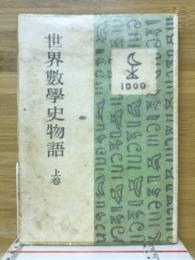 世界數學史物語
上卷
1000